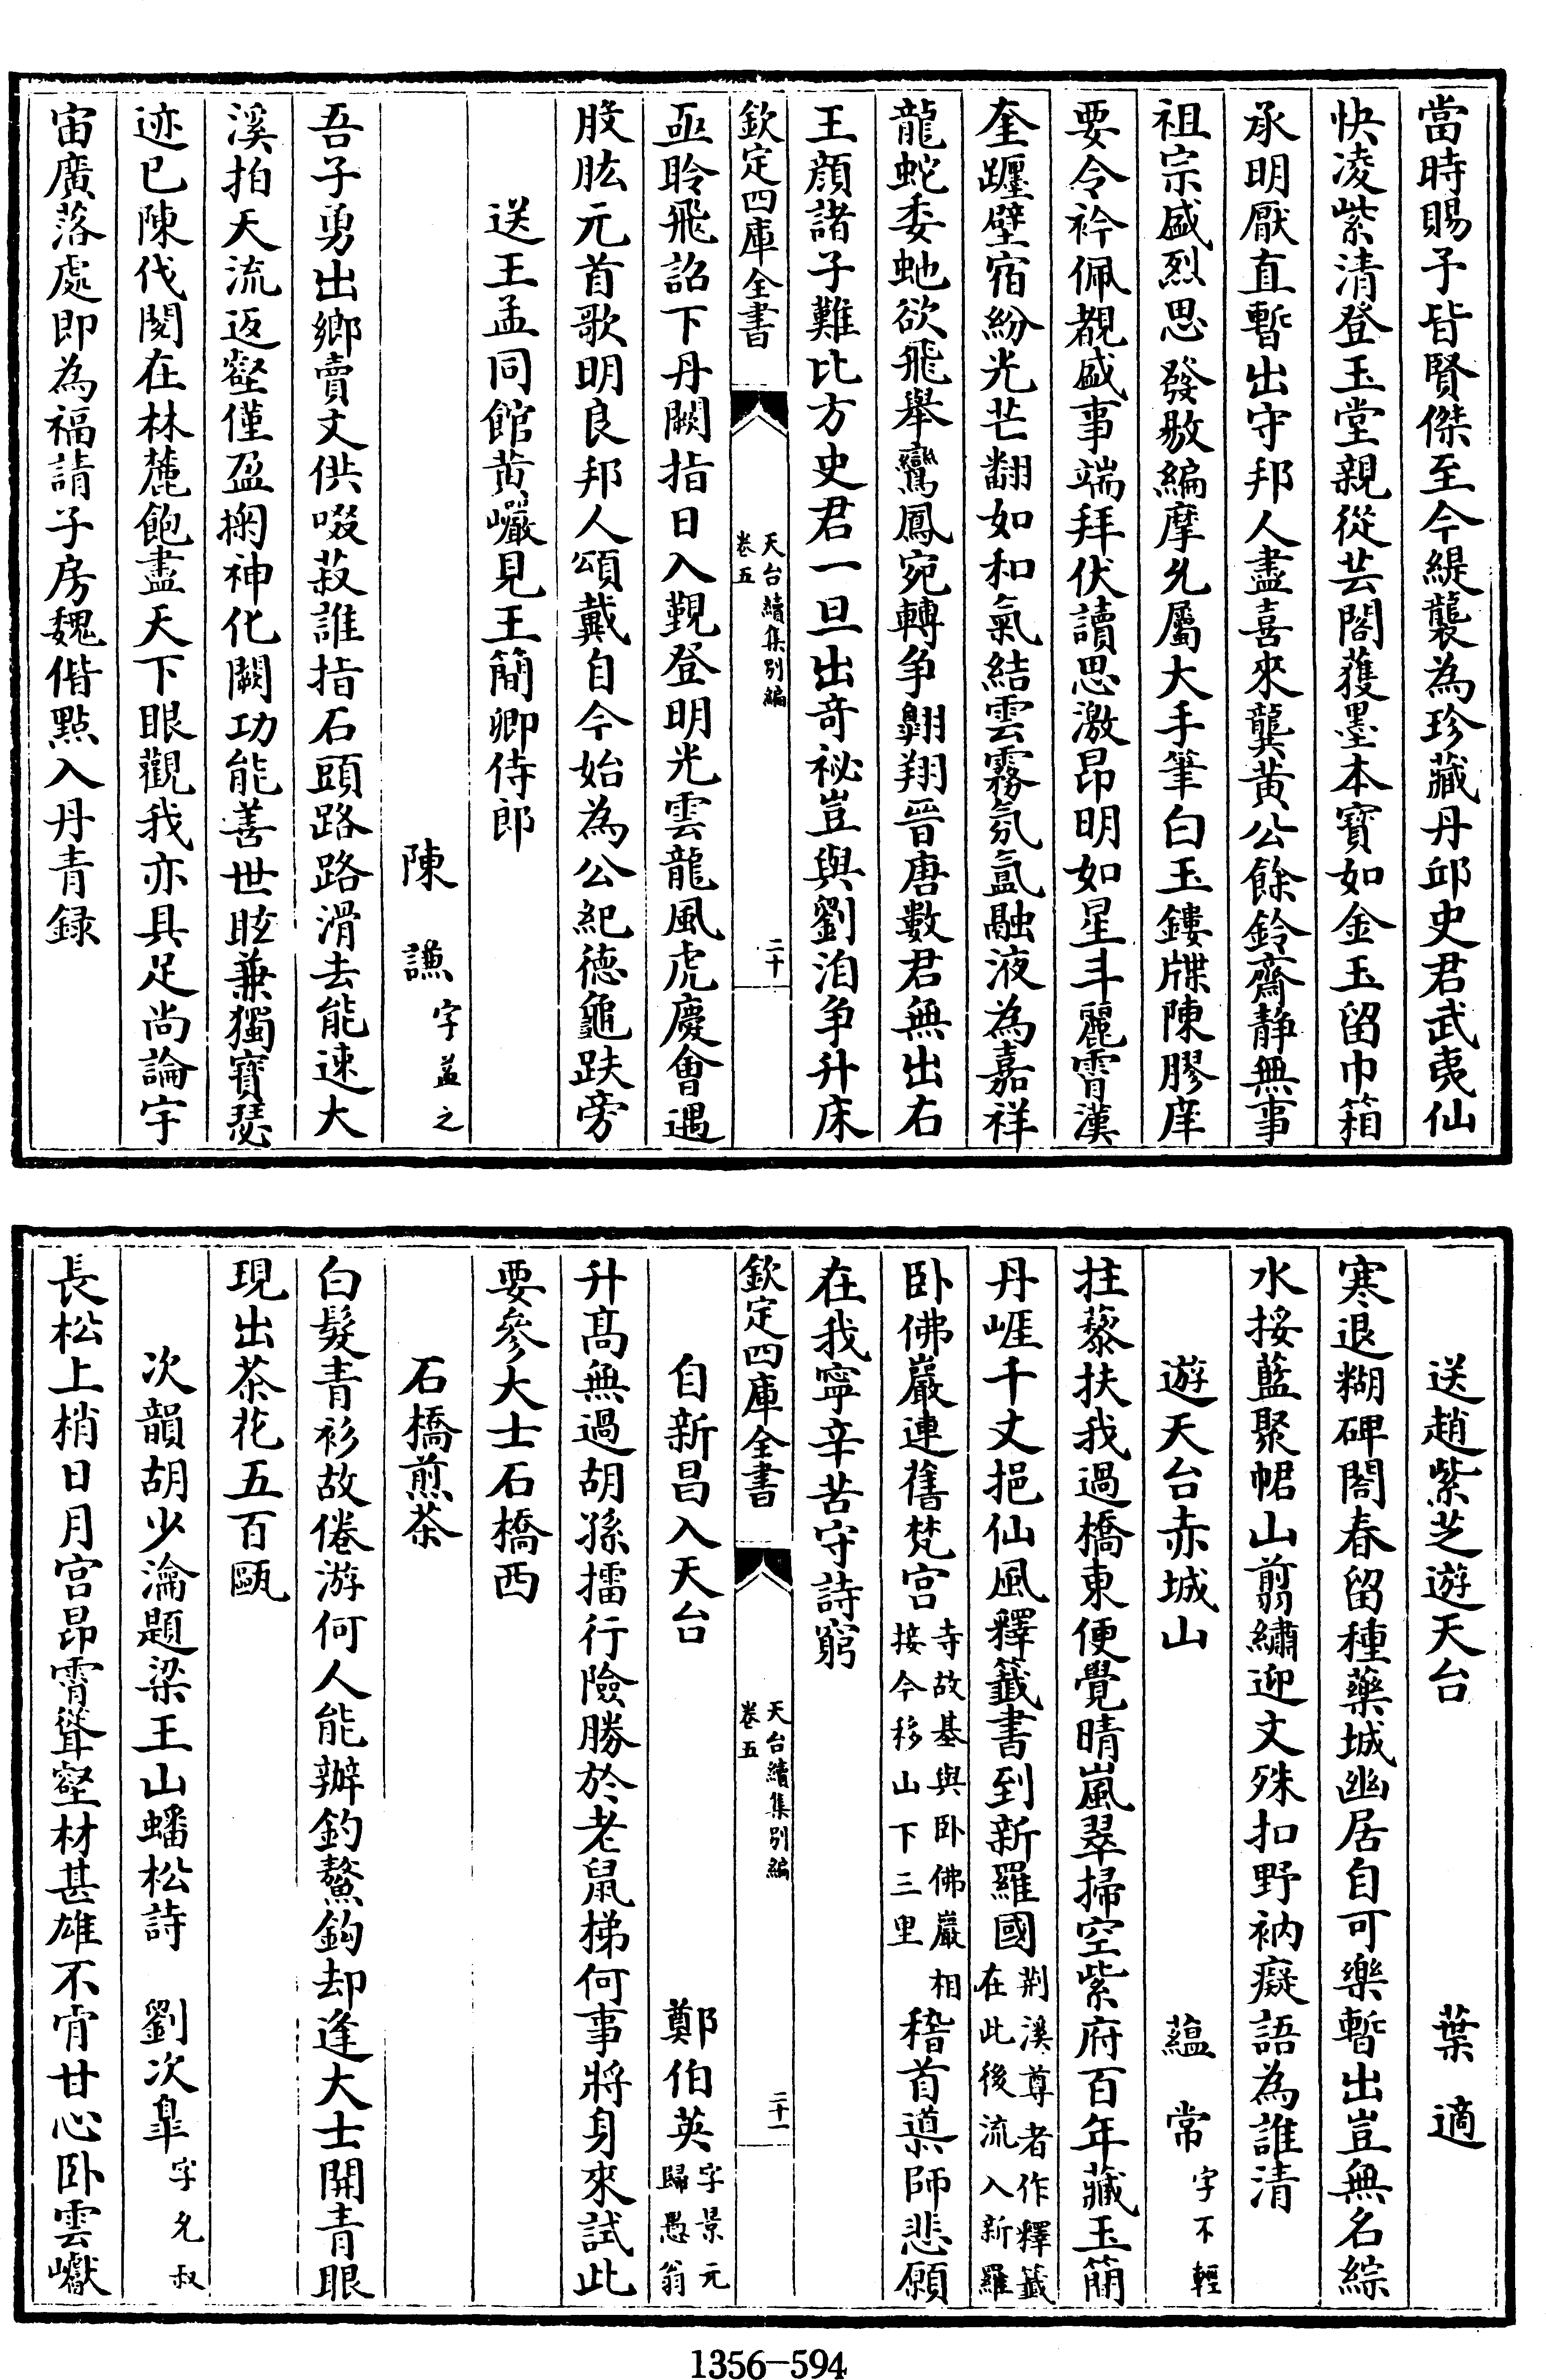 當時賜予皆賢傑至今緹襲為珍藏丹邱史君武夷仙
快凌紫清登玉堂親從芸閣獲墨本寳如金玉留巾箱
承明厭直暫出守邦人盡喜來龔黄公餘鈴齋静無事
祖宗盛烈思發敭編摩允屬大手筆白玉鏤牒陳膠庠
要令衿佩覩盛事端拜伏讀思激昂明如星斗麗霄漢
奎躔壁宿紛光芒翻如和氣結雲霧氛氲融液為嘉祥
龍蛇委虵欲飛舉鸞鳳宛轉争翺翔晉唐數君無出右
王顔諸子難比方史君一旦出竒祕豈與劉洎争升床
欽定四庫全書
天台續集别編
卷五
二十
亟聆飛詔下丹闕指日入覲登明光雲龍風虎慶會遇
股肱元首歌明良邦人頌戴自今始為公紀德龜趺旁
送王孟同館黄巖見王簡卿侍郎
陳謙字益之
吾子勇出鄉賣文供啜菽誰指石頭路路滑去能速大
溪拍天流返壑僅盈掬神化闕功能善世眩兼獨寳瑟
迹已陳伐閱在林麓飽盡天下眼觀我亦具足尚論宇
宙廣落處即為福請子房魏偕點入丹青録
送趙紫芝遊天台 葉適
寒退糊碑閣春留種藥城幽居自可樂暫出豈無名綜
水挼藍聚帬山翦繡迎文殊扣野衲癡語為誰清
遊天台赤城山 蘊常字不輕
拄藜扶我過橋東便覺晴嵐翠掃空紫府百年藏玉簡
丹崕千丈挹仙風釋籖書到新羅國荆溪尊者作釋籖
在此後流入新羅
卧佛巖連舊梵宫寺故基與卧佛巖相
接今移山下三里稽首導師悲願
在我寜辛苦守詩窮
欽定四庫全書
天台續集别編
卷五
二十一
自新昌入天台 鄭伯英字景元
歸愚翁
升髙無過胡孫擂行險勝於老鼠梯何事將身來試此
要參大士石橋西
石橋煎茶
白髮青衫故倦游何人能辦釣鰲鈎却逢大士開青眼
現出茶花五百甌
次韻胡少瀹題梁王山蟠松詩 劉次臯字允叔
長松上梢日月宫昂霄聳壑材甚雄不肯甘心卧雲巘
1356-594